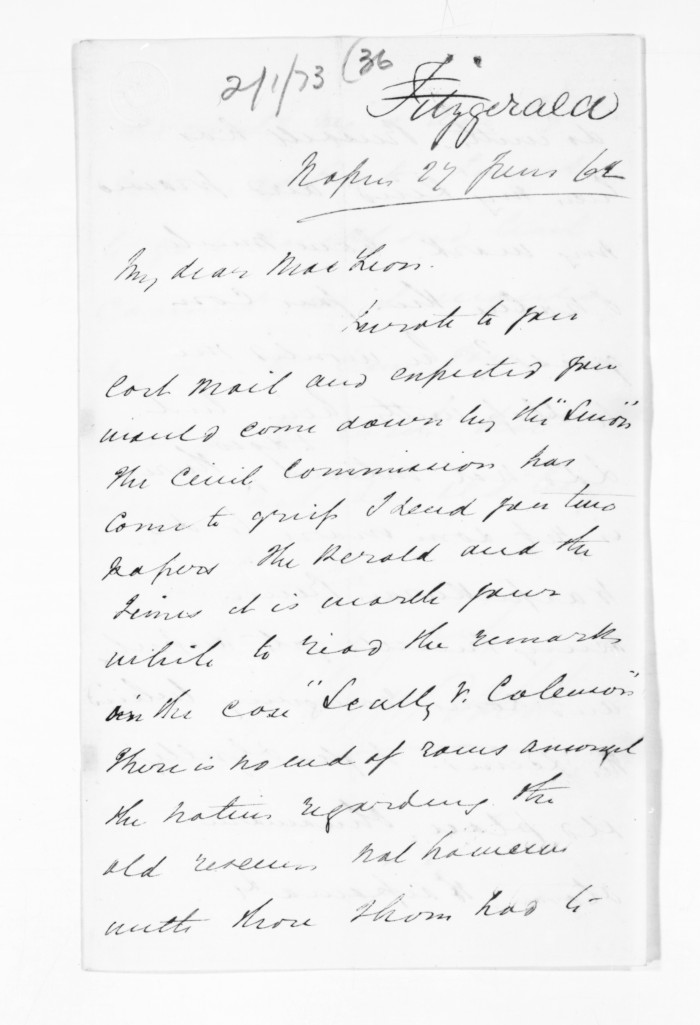 2/1/73 (36
Fitzgerald
Napier 27 June 62
My dear Mac Lean.
I wrote to you
last mail and expected you
would come down by the
the Civil Commission has
come to grief I send you two
papers the Herald and the
Times it is worth your
while to read the remarks
in the case "Scally v. Coleman"
there is no end of rows amongst
the natives regarding the
old reserves not however
with those Thom had to